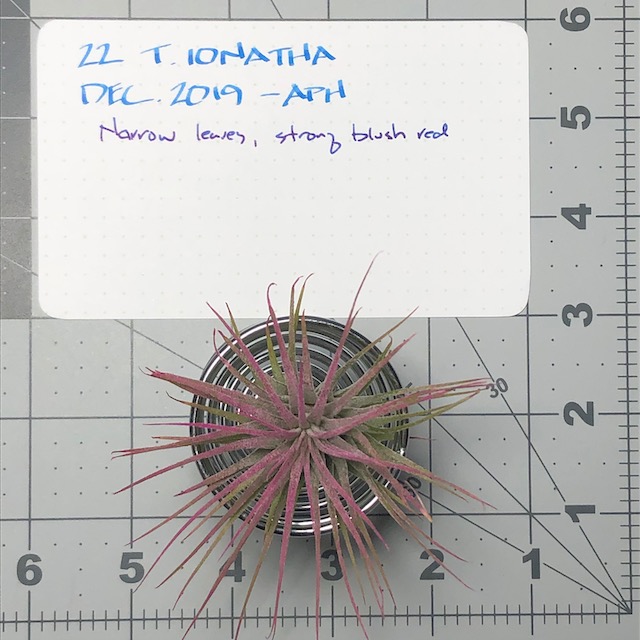 22 T. IONATHA
DEC. 2019 - APH
Narrow leaves, strong blush red
6
5
4
3
2
1
30
6 5 4 3 2 1